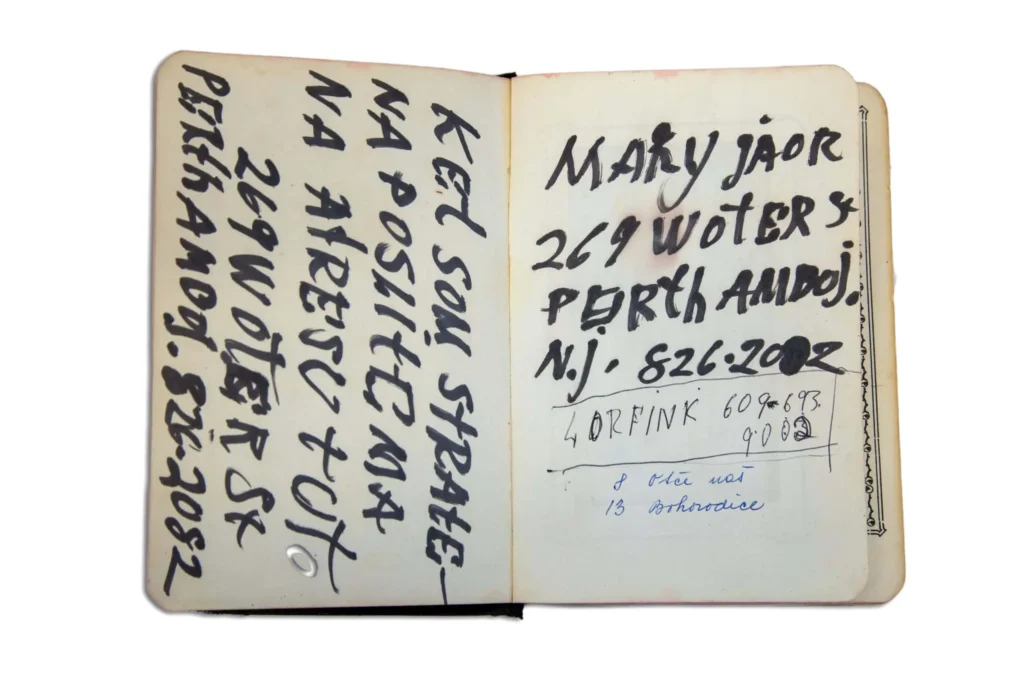 KEĆ SOM STRATE-
NA POSLITE MA
NA AĆRESU TUT
269 WOTER SK
PERth AMDOJ. 826-2082
MARY JÁOR
269 WOTER SK
PERth AMDOJ.
N.J. 826-2082
LORFINK 609-693.
9003
8 Otče naš
13 Bohorodice